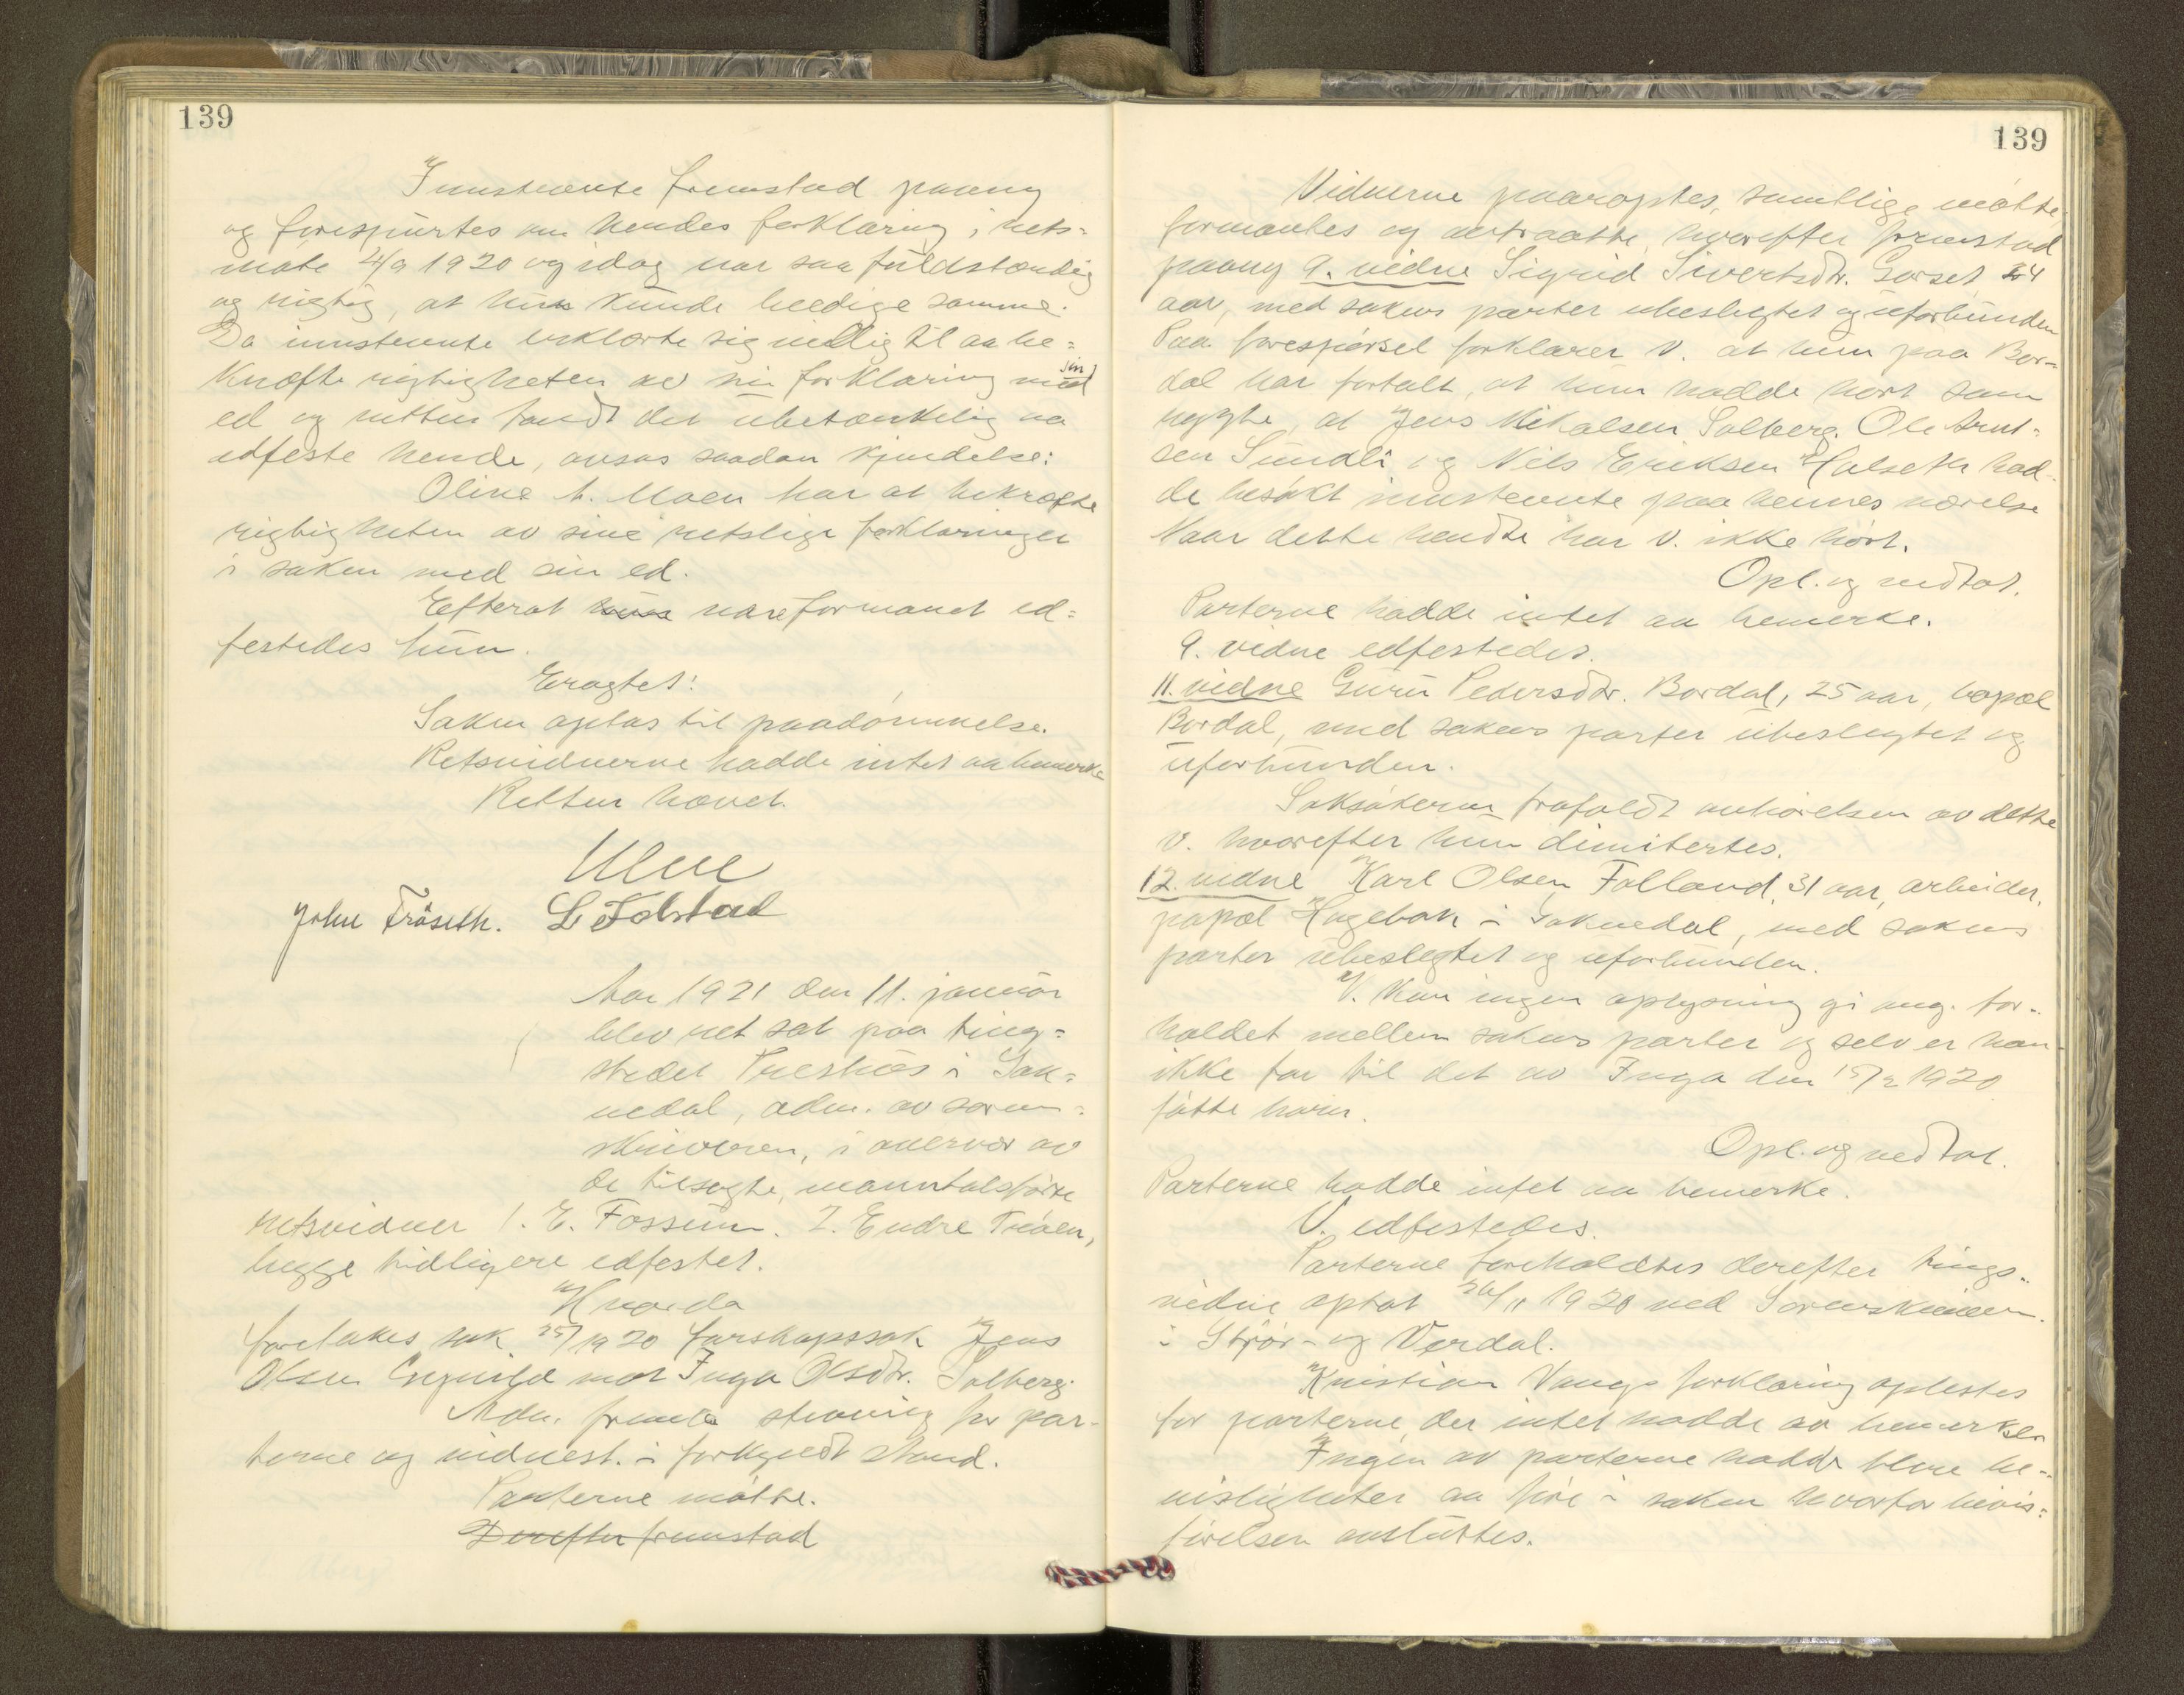 139
Innstevnte fremstod paany
og forespurtes om hendes forklaring i rets-
møte 4/9 1920 og idag var saa fuldstændig
og rigtig, at hun kunde beedige samme.
Da innstevnte erklærte sig villig til aa be-
kræfte rigtigheten av sin forklaring med sin
ed og retten fandt det ubetænkelig aa
edfeste hende, avsas saadan kjendelse:
Oline A. Moen har at bekræfte
rigtigheten av sine retslige forklaringer
i saken med sin ed.
Efterat hun var formanet ed-
festedes hun.
Eragtet:
Saken optas til paadømmelse.
Retsvidnerne hadde intet aa bemerke
Retten hævet.
John Frøseth. L Folstad
Aar 1921 den 11. januar
blev ret sat paa ting-
stedet Presthus i Sok-
nedal, adm. av soren-
skriveren, i overvær av
de tilsagte, manntalsførte
retsvidner 1. E. Fossum. 2. Endre Trøen,
begge tidligere edfestet.
Hvorda
foretokes sak 25/1920 farskapssak Jens
Olsen mot Inga Olsdtr. Solberg.
Adm. fremla stevning for par-
terne og vidnest. i forkyndt stand.
Parterne møtte.
Derefter fremstod
139
Vidnerne paaroptes, samtlige møtte,
formantes og avtraatte, hvorefter fremstod
paany 9. vidne Sigrid Sivertsdtr. Gorset, 24
aar, med sakens parter ubeslegtet og uforbunden
Paa forespørsel forklarer V. at hun paa Bor-
dal har fortalt, at hun hadde hørt som
rygte, at Jens Mikalsen Solberg, Ole Arnt-
sen Sundli og Nils Eriksen Halseth had-
de besøkt innstevnte paa hennes værelse
Naar dette hendte har V. ikke hørt.
Opl. og vedtat.
Parterne hadde intet aa bemerke.
9. vidne edfestedes.
11. vidne Guru Pedersdtr. Bordal, 25 aar, bopæl
Bordal, med sakens parter ubeslegtet og
uforbunden.
Saksøkeren frafaldt avhørelsen av dette
V. hvorefter hun dimitertes.
12. vidne Karl Olsen Folland, 31 aar, arbeider,
papæl Hagebak i Soknedal, med sakens
parter ubeslegtet og uforbunden.
V. kan ingen oplysning gi ang. for-
holdet mellem sakens parter og selv er han
ikke far til det av Inga den 15/2 1920
føtte barn.
Opl. og vedtat.
Parterne hadde intet aa bemerke.
V. edfestedes.
Parterne foreholdtes derefter tings-
vidne optat 26/11 1920 ved Sorenskriveren
i Stjør- og Verdal.
Kristian Vangs forklaring oplestes
for parterne, der intet hadde aa bemerke
Ingen av parterne hadde flere be-
visligheter aa føre i saken hvorfor bevis-
førelsen avsluttes.